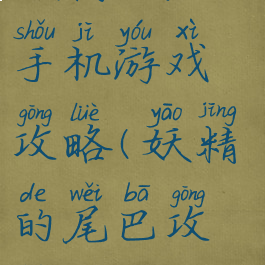 shǒu jī yóu xì
手机游戏
gōng lüè yāo jīng
攻略(妖精
de wěi bā gōng
的尾巴攻